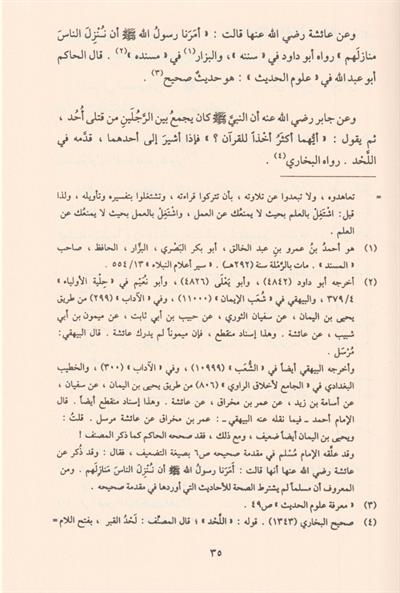 وعن عائشة رضي الله عنها قالت : « أمَرَنا رسولُ الله ﷺ أن نُنْزِلَ الناسَ
منازلَهم » رواه أبو داود في « سننه » ، والبزار(١) في « مسنده »(٢) . قال الحاكم
أبو عبد الله في « علوم الحديث » : هو حديثٌ صحيح(٣) .
وعن جابر رضي الله عنه أن النبيَّ ﷺ كان يجمعُ بين الرَّجُلَينِ من قتلى أُحُد ،
ثم يقول : « أيُّهما أكثَرُ أخْذاً للقرآن ؟ » فإذا أُشيرَ إلى أحدهما ، قدَّمه في
اللَّحْد . رواه البخاري(٤) .
= تعاهدوه ، ولا تبعدوا عن تلاوته ، بأن تتركوا قراءته ، وتشتغلوا بتفسيره وتأويله ، ولذا
قيل : اشتَغِلْ بالعلم بحيث لا يمنعُك عن العمل ، واشتَغِلْ بالعمل بحيث لا يمنعُك عن
العلم .
(١) هو أحمدُ بنُ عمرو بنِ عبد الخالق ، أبو بكر البَصْري ، البزَّار ، الحافظ ، صاحب
« المسند » . مات بالرَّمْلة سنة (٢٩٢هـ) . « سير أعلام النبلاء » ١٣/ ٥٥٤ .
(٢) أخرجه أبو داود (٤٨٤٢) ، وأبو يَعْلَى (٤٨٢٦) ، وأبو نُعَيْم في « حِلْية الأولياء »
٣٧٩/٤ ، والبيهقي في « شُعَب الإيمان » (١١٠٠٠) ، وفي « الآداب » (٢٩٩) من طريق
يحيى بن اليمان ، عن سفيان الثوري ، عن حبيب بن أبي ثابت ، عن ميمون بن أبي
شبيب ، عن عائشة . وهذا إسناد منقطع ، فإن ميموناً لم يدرك عائشة . قال البيهقي :
مُرْسَل .
وأخرجه البيهقي أيضاً في « الشُّعَب » (١٠٩٩٩) ، وفي « الآداب » (٣٠٠) ، والخطيب
البغدادي في « الجامع لأخلاق الراوي » (٨٠٦) من طريق يحيى بن اليمان ، عن سفيان ،
عن أسامة بن زيد ، عن عمر بن مخراق ، عن عائشة . وهذا إسناد منقطع أيضاً . قال
الإمام أحمد ـ فيما نقله عنه البيهقي ـ : عمر بن مخراق عن عائشة مرسل . قلتُ :
ويحيى بن اليمان أيضاً ضعيف ، ومع ذلك ، فقد صححه الحاكم كما ذكر المصنف !
وقد علَّقه الإمام مُسْلم في مقدمة صحيحه ص٦ بصيغة التضعيف ، فقال : وقد ذُكر عن
عائشة رضي الله عنها أنها قالت : أمَرَنا رسولُ الله ﷺ أن نُنْزِلَ الناسَ مَنازِلَهم . ومن
المعروف أن مسلماً لم يشترط الصحة للأحاديث التي أوردها في مقدمة صحيحه .
(٣) « معرفة علوم الحديث » ص٤٩ .
(٤) صحيح البخاري (١٣٤٣) . قوله : « اللَّحْد » ؛ قال المصنِّف : لَحْدُ القبر ، بفتح اللام =
٣٥